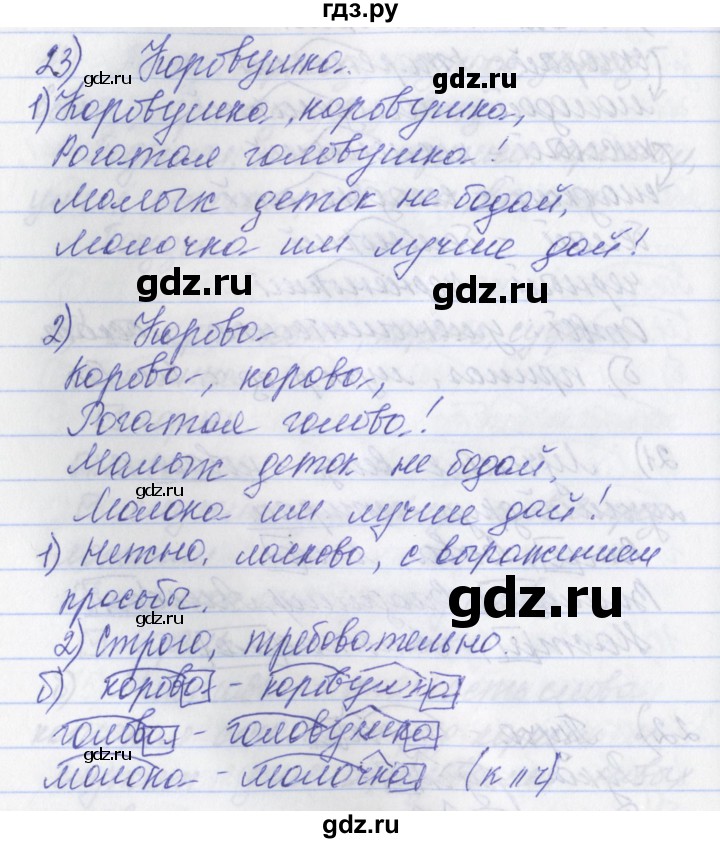 гдз.ру
23) Коровушка.
gdz.ru
gdz.ru
1) Коровушка, коровушка,
Рогатая головушка!
Малых деток не бодай,
Молочка им лучше дай!
gdz.ru
gdz.ru
2) Корова
Корова, корова,
Рогатая голова!
Малых деток не бодай,
gdz.ru
gdz.ru
Молока им лучше дай!
1) Нежно, ласково, с выражением
просьбы.
gdz.ru
2) Строго, требовательно.
б) корова - коровушка
голова - головушка
gdz.ru
gdz.ru
молока - молочка (к // ч)
gdz.ru
gdz.ru